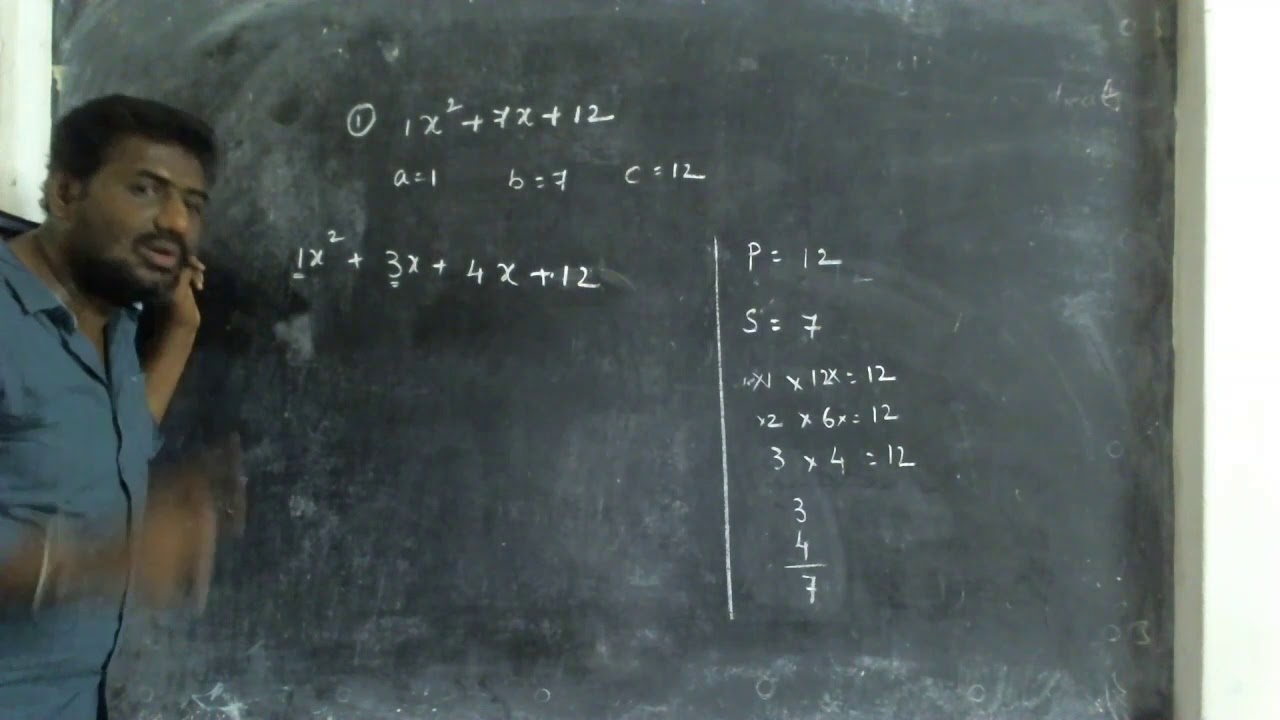 ① 1x² + 7x + 12
a = 1 b = 7 c = 12
1x² + 3x + 4x + 12
P = 12
S = 7
1 × 12x = 12
×2 × 6x = 12
3 × 4 = 12
3
4
7